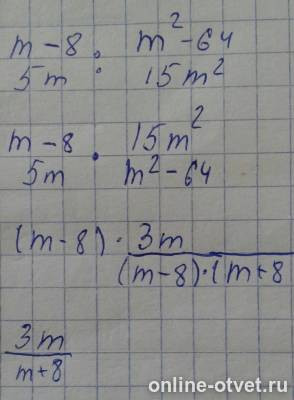 m-8 : m²-64
5m 15m²
m-8 · 15m²
5m m²-64
(m-8) · 3m
(m-8)·(m+8
3m
m+8
online-otvet.ru